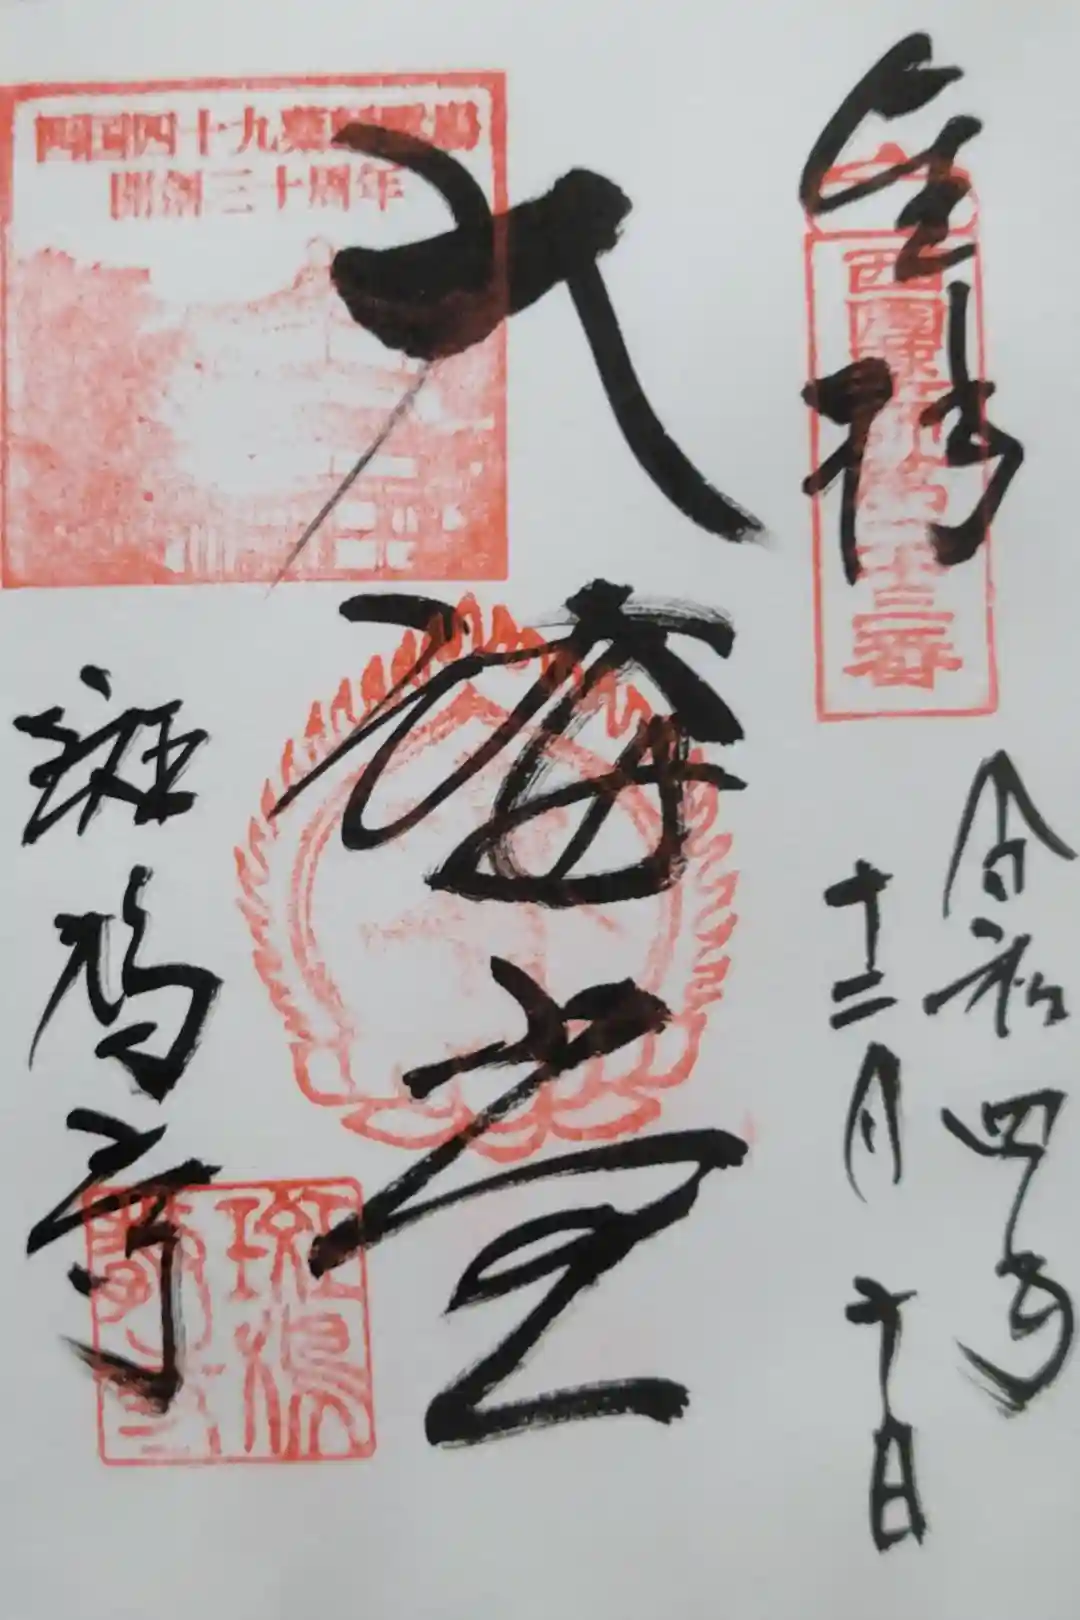 奉拝
西國薬師第二十三番
令和四年
十二月十日
西国四十九薬師霊場
開創三十周年
大講堂
斑鳩寺
斑鳩